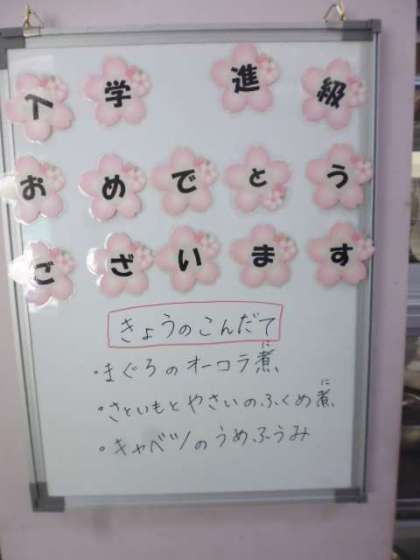 入学 進級
おめでとう
ございます
きょうのこんだて
・まぐろのオーロラ煮
・さといもとやさいのふくめ煮
・キャベツのうめふうみ